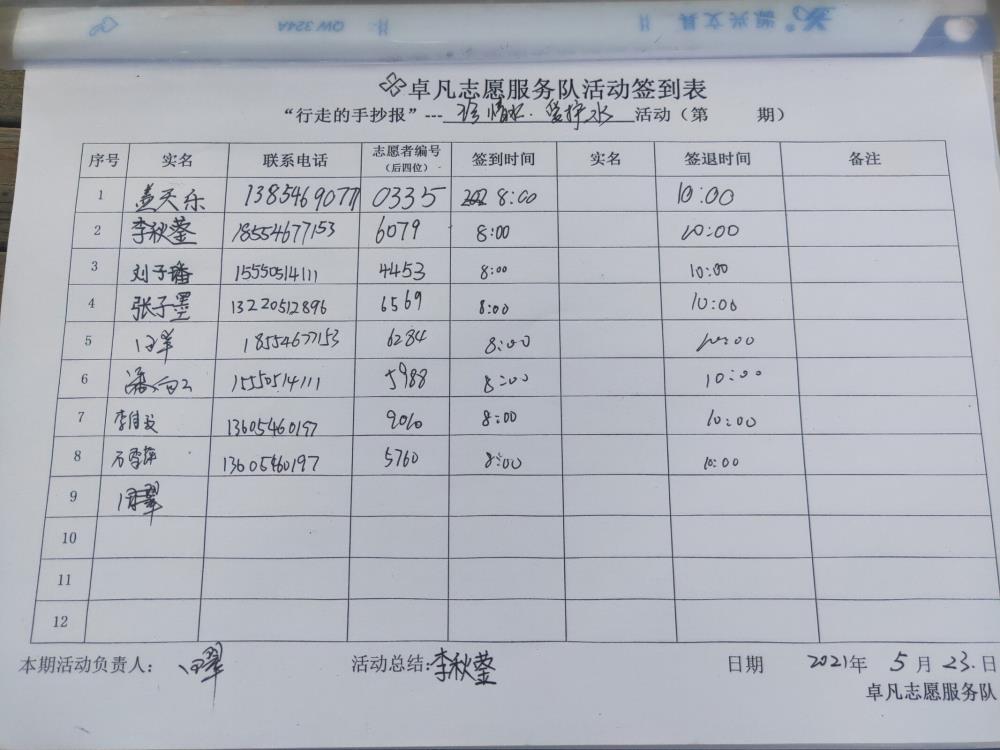 QW 324A
源兴文具
卓凡志愿服务队活动签到表
“行走的手抄报”---珍惜水·爱护水 活动（第 期）
序号 实名 联系电话 志愿者编号（后四位） 签到时间 实名 签退时间 备注
1 盖天乐 13854690777 0335 8:00 10:00
2 李秋蓥 18554677153 6079 8:00 10:00
3 刘子璠 15550514111 4453 8:00 10:00
4 张子墨 13220512896 6569 8:00 10:00
5 18554677153 6284 8:00 10:00
6 15550514111 5988 8:00 10:00
7 13605460197 9010 8:00 10:00
8 13605460197 5760 8:00 10:00
9
10
11
12
本期活动负责人： 活动总结：李秋蓥 日期 2021年 5月 23.日
卓凡志愿服务队